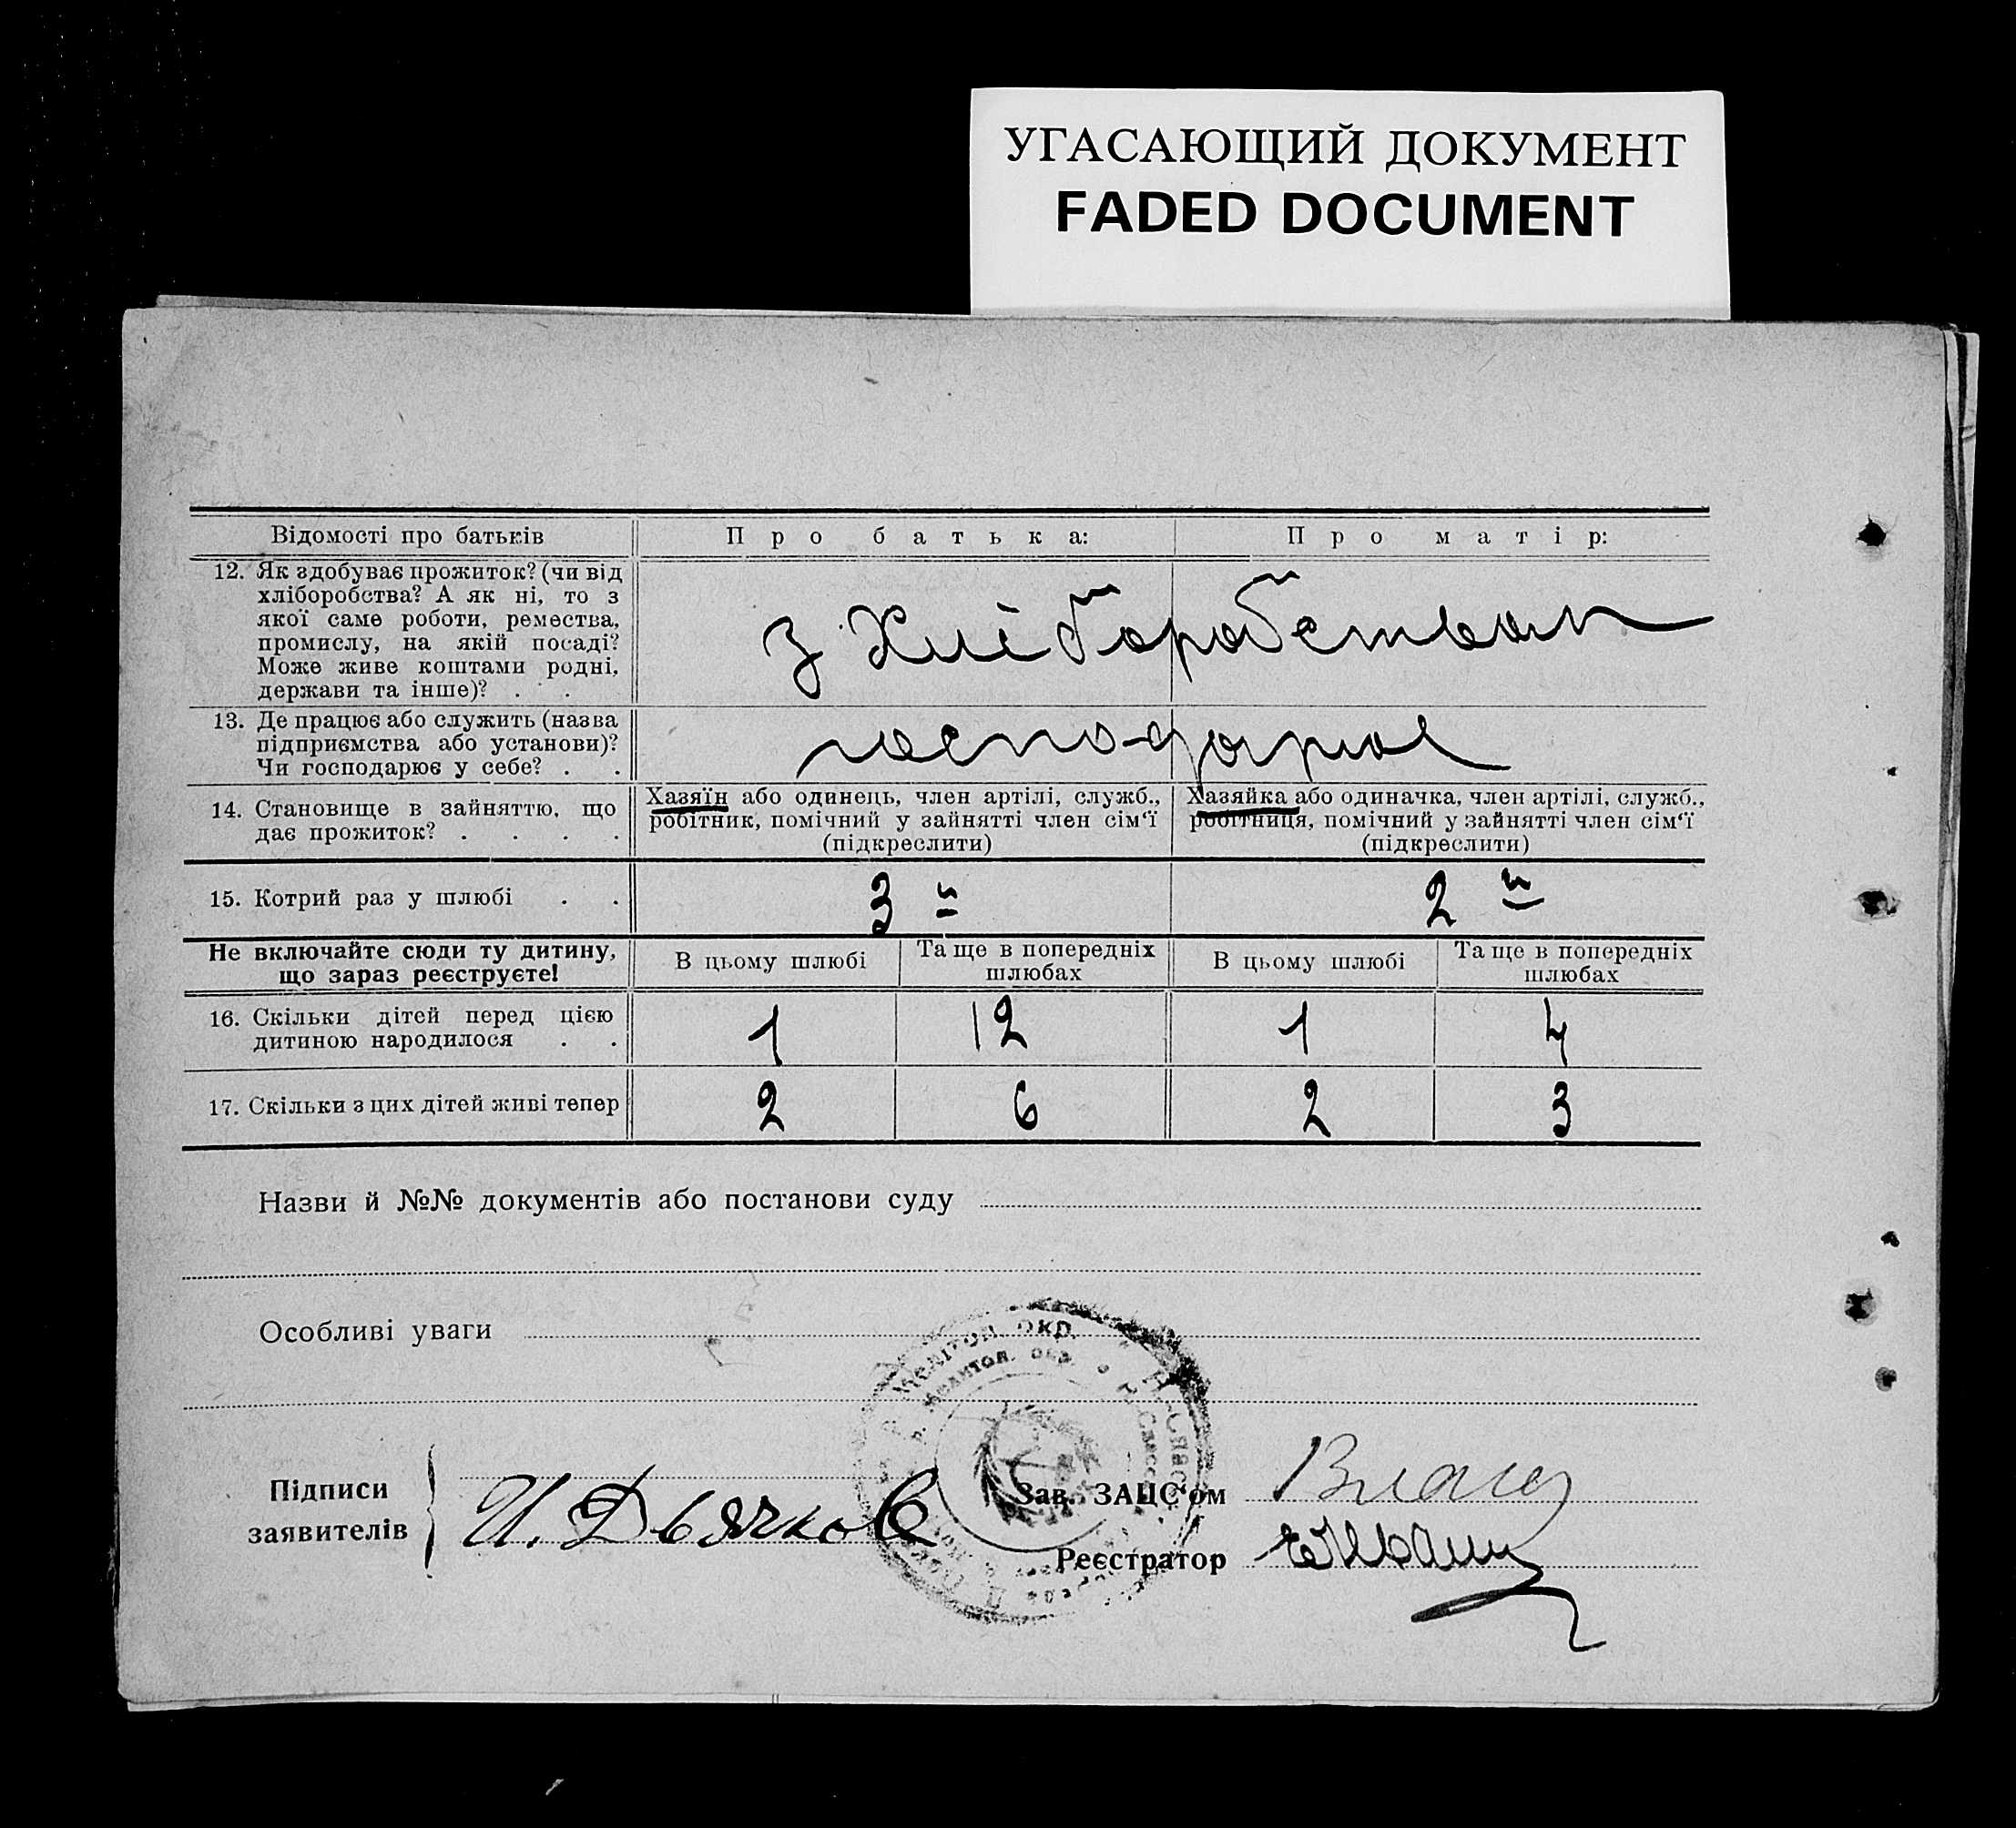 УГАСАЮЩИЙ ДОКУМЕНТ
FADED DOCUMENT
Відомості про батьків
Про батька:
Про матір:
12. Як здобуває прожиток? (чи від
хліборобства? А як ні, то з
якої саме роботи, ремества,
промислу, на якій посаді?
Може живе коштами родні,
держави та інше)? . .
З Хліборобства
13. Де працює або служить (назва
підприємства або установи)?
Чи господарює у себе? . .
господарює
14. Становище в зайняттю, що
дає прожиток? . . . .
Хазяїн або одинець, член артілі, служб.,
робітник, помічний у зайнятті член сім‘ї
(підкреслити)
Хазяйка або одиначка, член артілі, служб.,
робітниця, помічний у зайнятті член сім‘ї
(підкреслити)
15. Котрий раз у шлюбі . .
3 й
2 й
Не включайте сюди ту дитину,
що зараз реєструєте!
В цьому шлюбі
Та ще в попередніх
шлюбах
В цьому шлюбі
Та ще в попередніх
шлюбах
16. Скільки дітей перед цією
дитиною народилося . .
1
12
1
4
17. Скільки з цих дітей живі тепер
2
6
2
3
Назви й №№ документів або постанови суду
Особливі уваги
МЕЛІТОП. ОКР.
Підписи
заявителів
И. Дьячков
Зав. ЗАЦС‘ом
Реєстратор